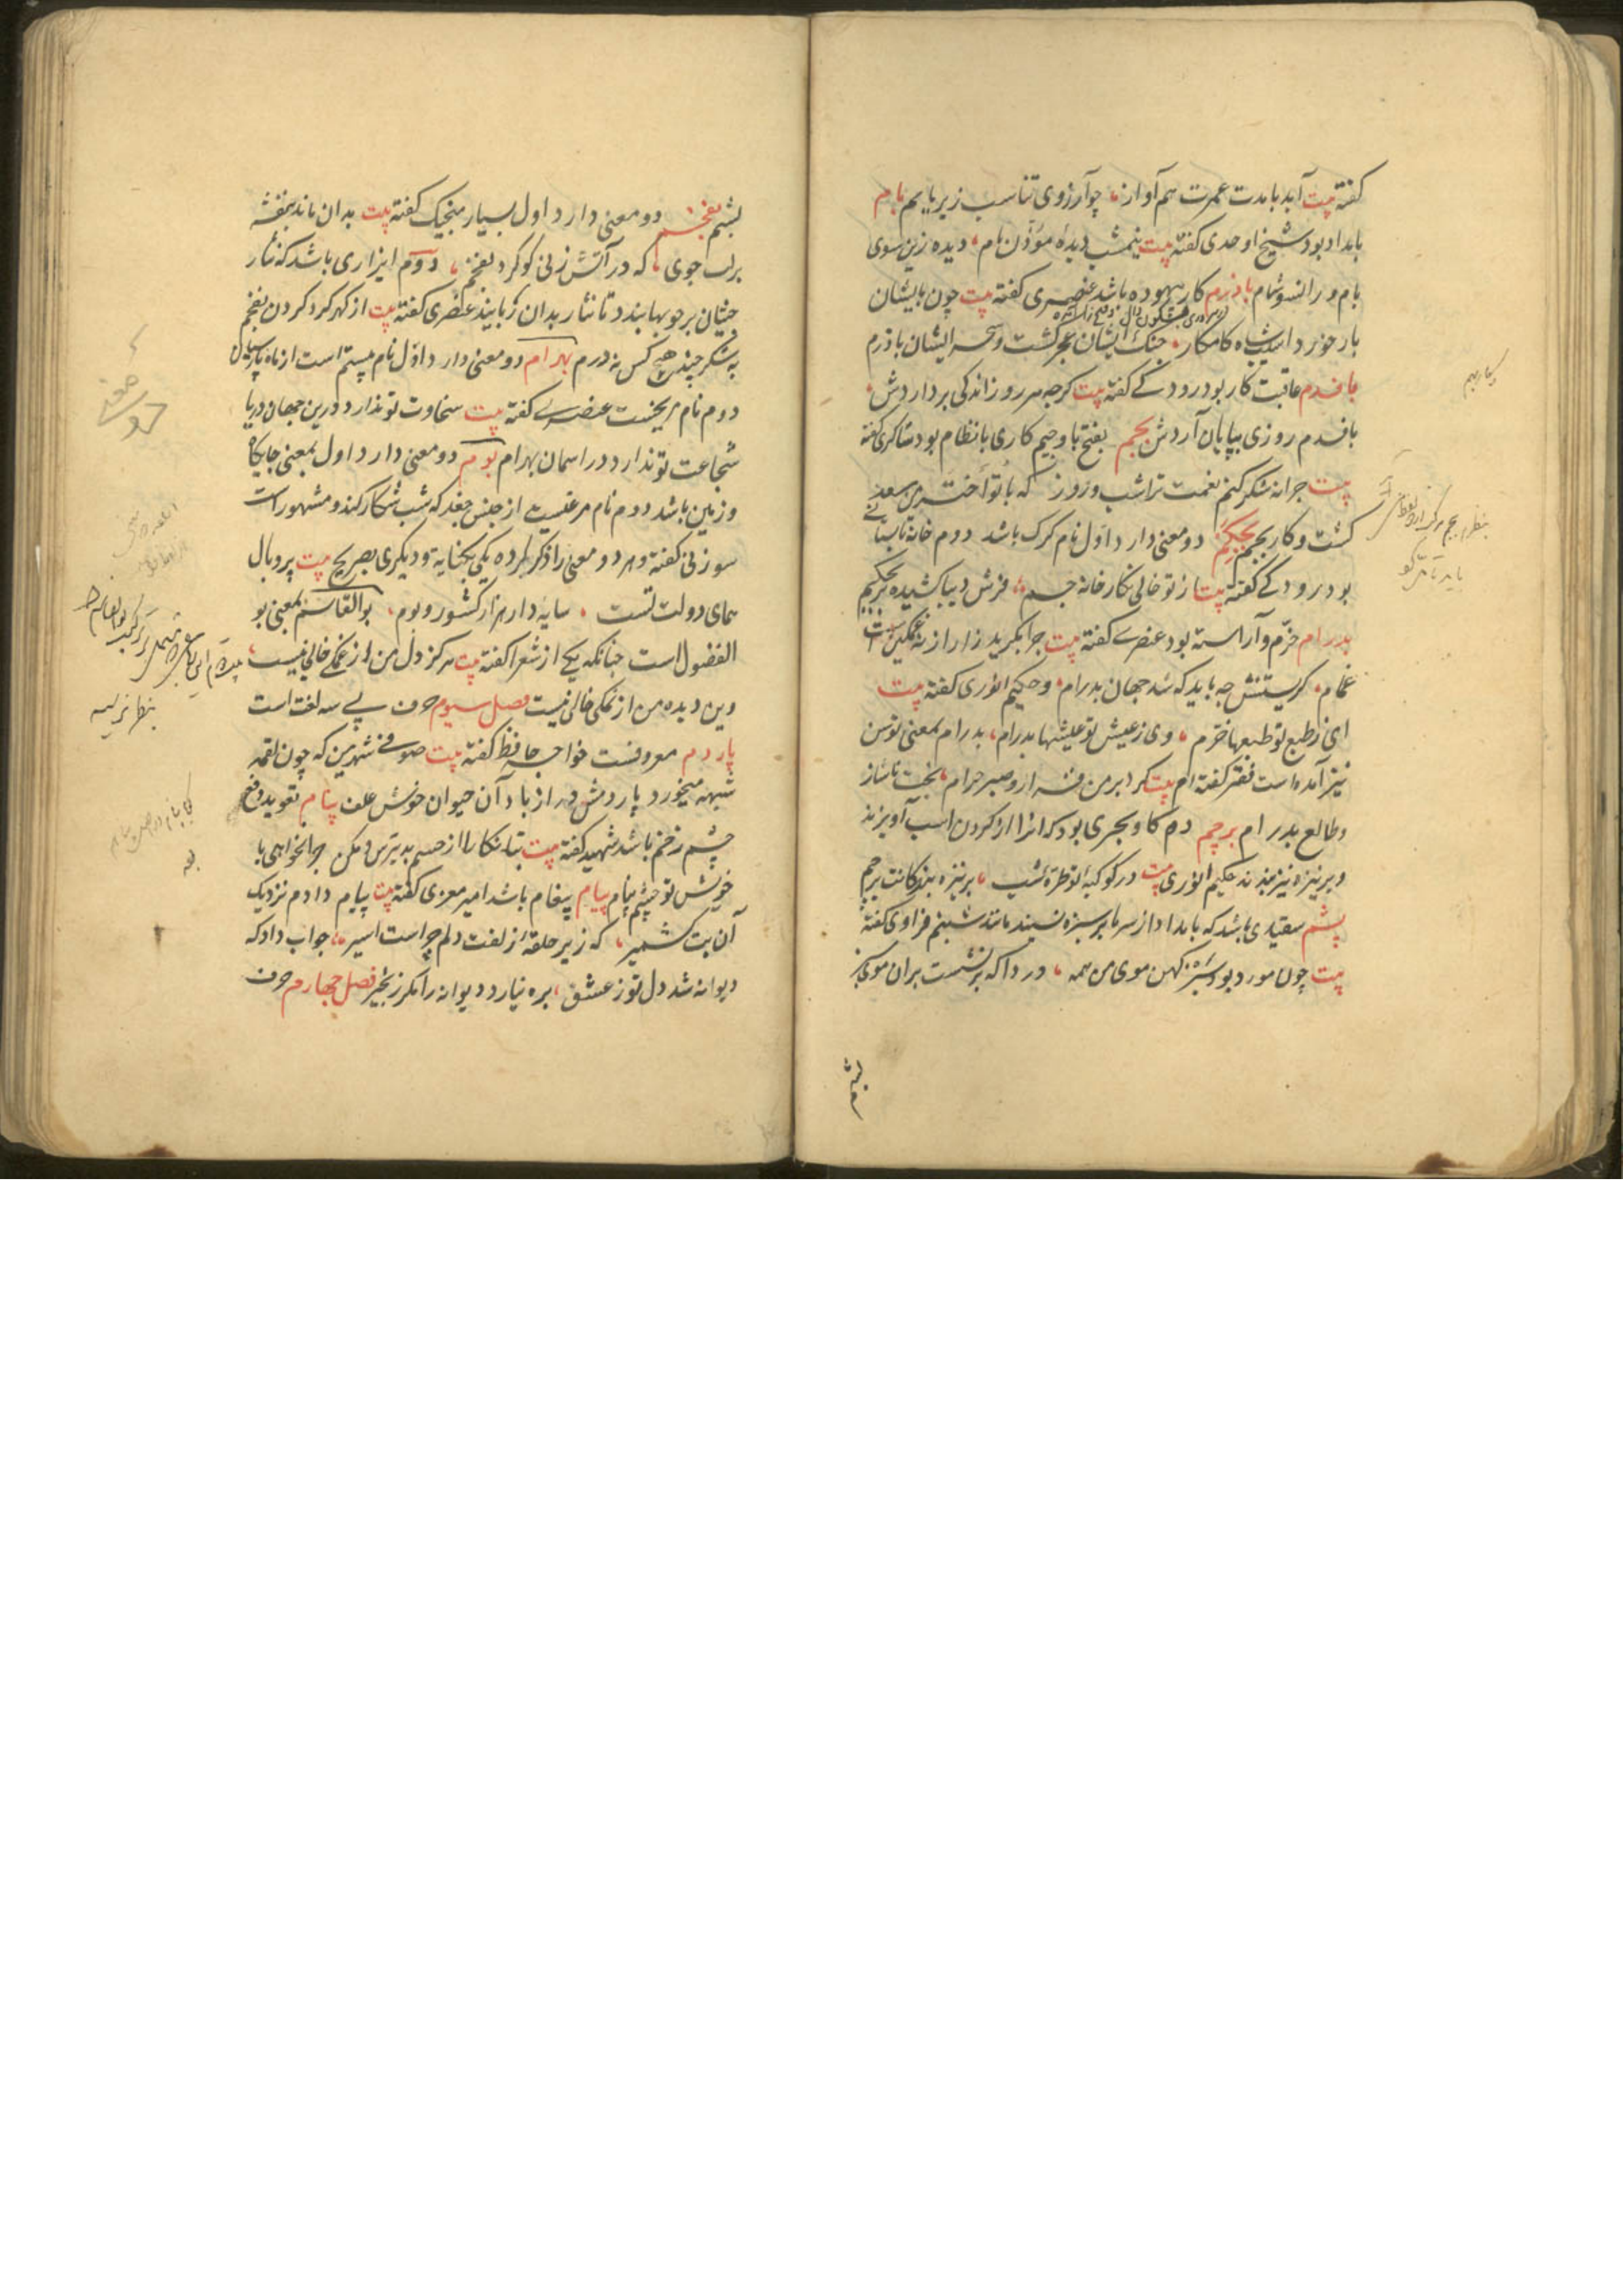 گفته بیت آید بامدت عمرت هم آواز، چو آرزوی تناسب زیر با بم بام
بامداد بود شیخ اوحدی گفته بیت نیمشب دیدهٔ مؤذن بام، دیده زین سوی
بام و رانسو شام باذرم کار بیهوده باشد عنصری گفته بیت چون بایشان
بازخورد شاه کامکار، جنک ایشان عجز گشت و سحر ایشان باذرم
بافدم عاقبت کار بود رودکی گفته بیت گرچه هر روز اندکی برداردش،
بافدم روزی بپایان آردش بجم بفتح با و جیم کاری بانظام بود شاکری گفته
بیت چرا نه شکر کنم نعمت ترا شب و روز که با تو اختر من سعد
گشت و کار بجم بجکم دو معنی دارد اول نام گرک باشد دوم خانه تابستانی
بود رودکی گفته بیت از تو خالی نگارخانهٔ جم، فرش دیبا کشیده بر بجکم
بدرام خرّم و آراسته بود عنصری گفته بیت چرا بگرید زار ار نه غمگین است
غمام، گریستنش چه باید که شد جهان بدرام، و حکیم انوری گفته بیت
ای ز طبع تو طبعها خرم، وی ز عیش تو عیشها بدرام، بدرام بمعنی توسن
نیز آمده است فقیر گفته ام بیت کرد بر من قرار و صبر حرام، بخت ناساز
و طالع بدرام برچم دم گاو بحری بود که انرا از گردن اسب آویزند
و بر نیزه نیز بندند حکیم انوری بیت در کوکبهٔ تو طرهٔ شب، بر نیزه بندگانت برچم
پشم سفیدی باشد که بامداد از سرما بر سبزه نشیند مانند شبنم فراوی گفته
بیت چون مورد بود سبز کهن موی من همه، دردا که برنشست بران موی سبز
بشم
بشم بفخم دو معنی دارد اول بسیار منجیک گفته بیت بدان ماند بنفشه
بر لب جوی، که در آتش زنی گوکرد بفخم، دوم ایزاری باشد که نثار
چینان بر چوبها بندد تا نثار بدان ربایند عنصری گفته بیت از گهر گرد کردن بفخم
نه شکر چید هیچ کس نه درم بهرام دو معنی دارد اول نام بیستم است از ماه پارسیان
دوم نام مریخست عنصری گفته بیت سخاوت تو ندارد درین جهان دریا
شجاعت تو ندارد در اسمان بهرام بوم دو معنی دارد اول بمعنی جایگاه
و زمین باشد دوم نام مرغیست از جنس جغد که شب شکار کند و مشهور است
سوزنی گفته و هر دو معنی را ذکر کرده یکی بکنایه و دیگری بصریح بیت پر و بال
همای دولت تست، سایه دار هزار کشور و بوم، بوالقاسم بمعنی بو
الفضول است چنانکه یکی از شعرا گفته بیت هرگز دل من از غمکی خالی نیست،
وین دیده من از نمکی خالی نیست فصل سیوم حرف پی سه لغت است
پاردم معروفست خواجه حافظ گفته بیت صوفی شهر بین که چون لقمه
شبهه میخورد پاردمش دراز باد آن حیوان خوش علف پنام تعویذ دفع
چشم زخم باشد شهید گفته بیت بتا نگارا از چشم بد بترس و مکن چرا نخواهی با
خویش تو چشم پنام پیام پیغام باشد امیر معزی گفته بیت پیام دادم نزدیک
آن بت کشمیر، که زیر حلقهٔ زلفت دلم چراست اسیر، جواب داد که
دیوانه شد دل تو ز عشق، بره نیارد دیوانه را مگر زنجیر فصل چهارم حرف